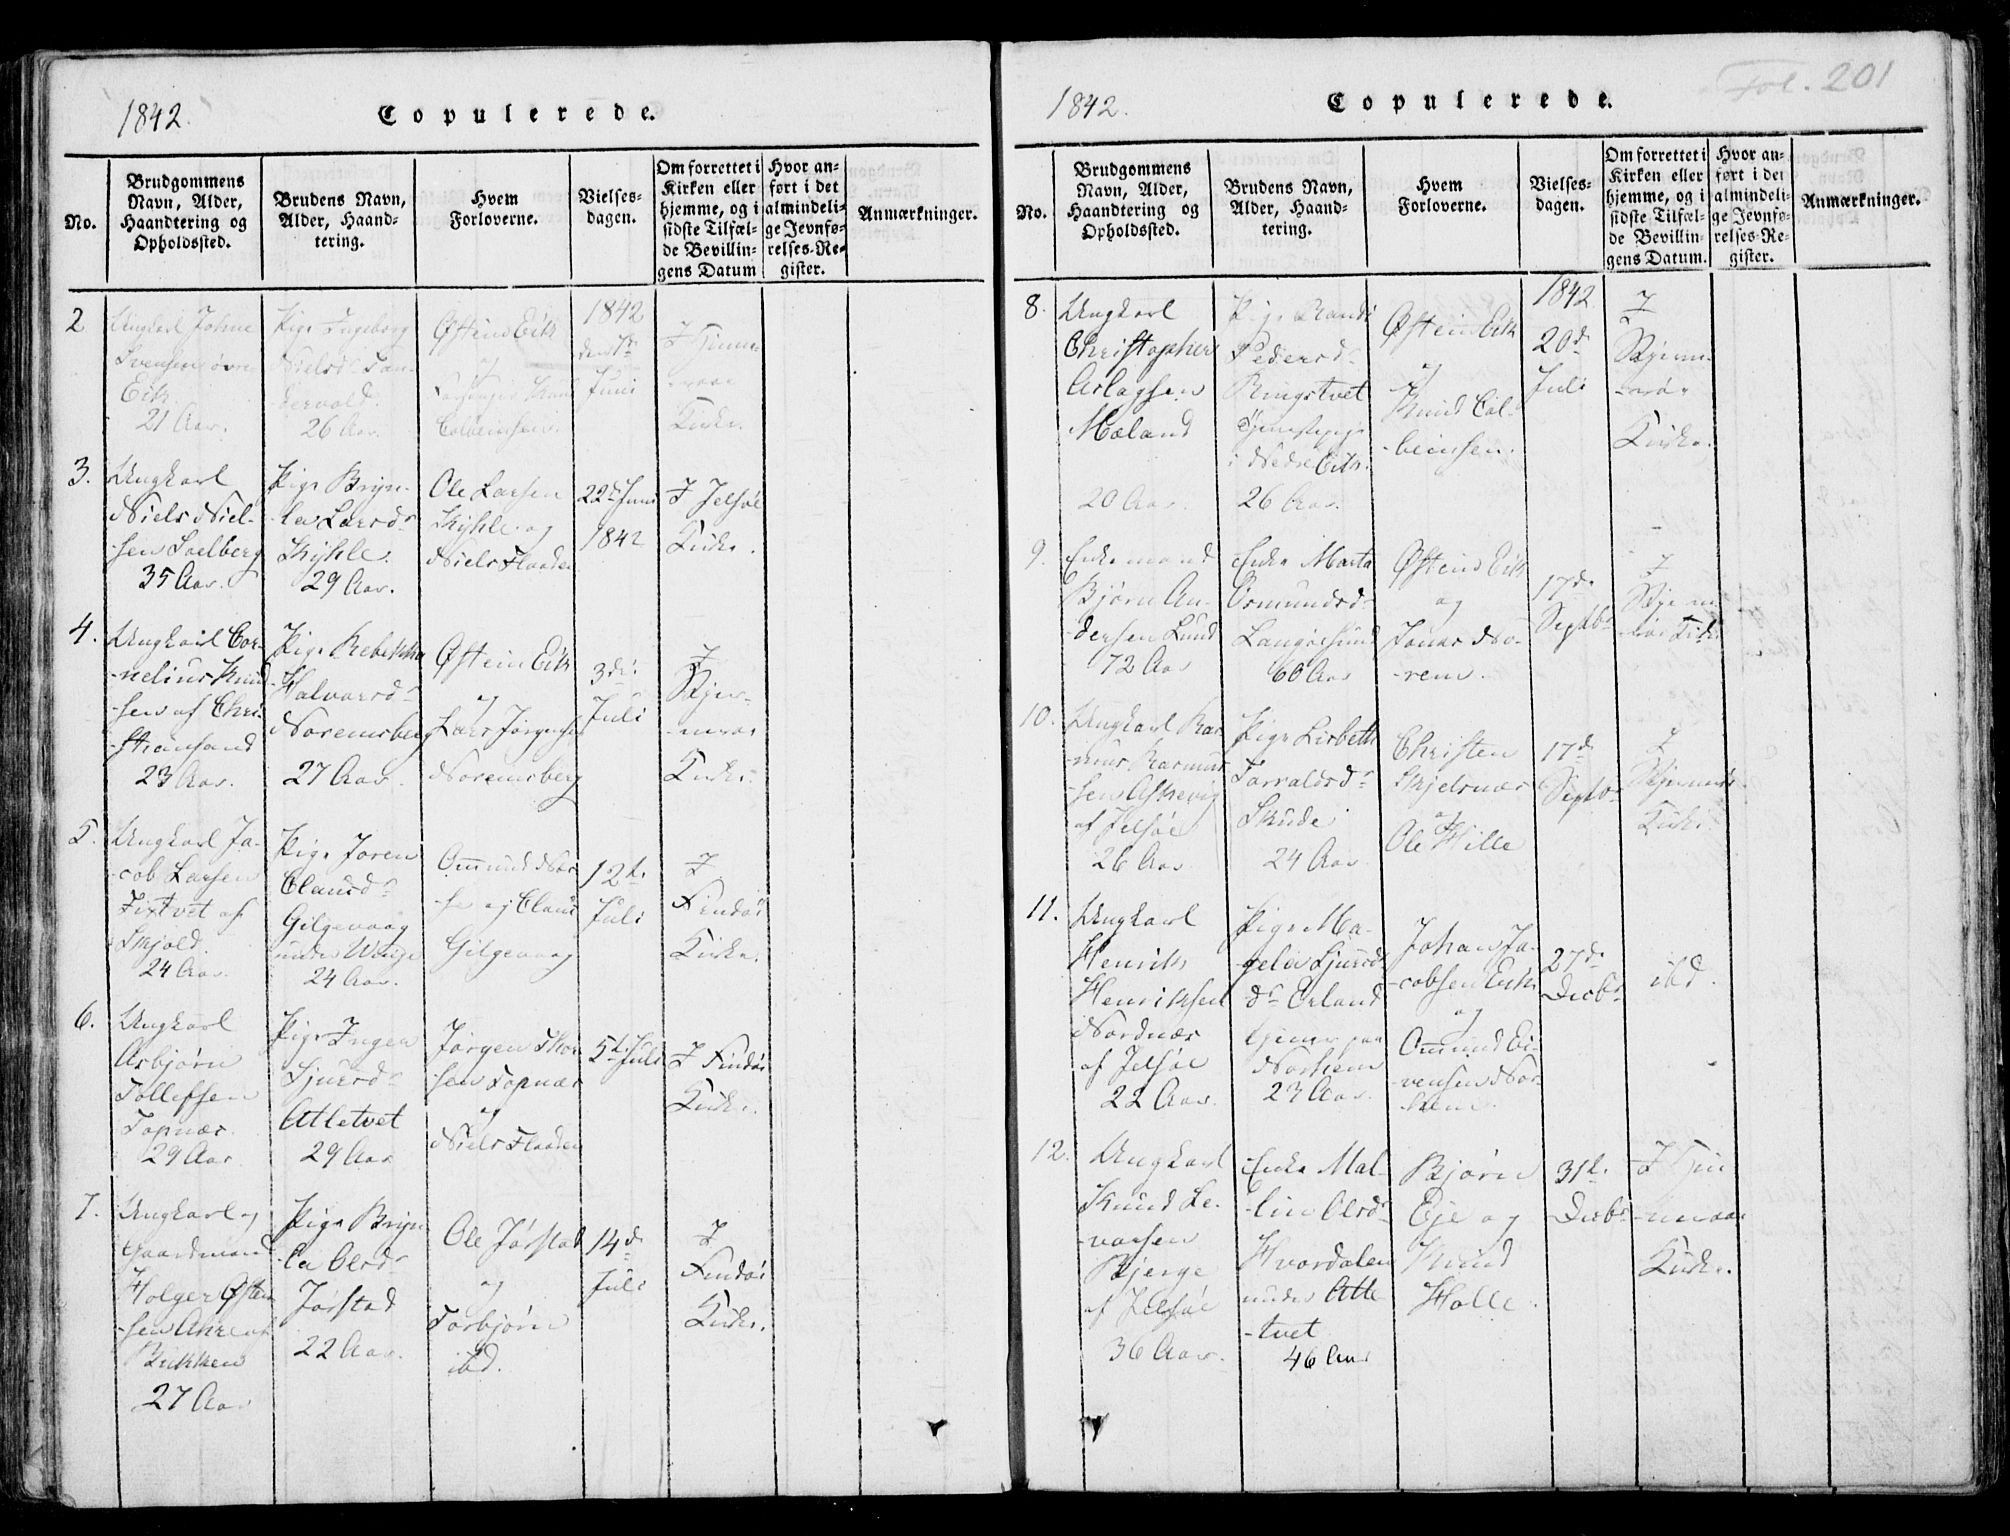 1842.
Copulerede.
No.
Brudgommens
Navn, Alder,
Haandtering og
Opholdssted.
Brudens Navn,
Alder, Haand-
tering.
Hvem
Forloverne.
Vielses-
dagen.
Om forrettet i
Kirken eller
hjemme, og i
sidste Tilfæl-
de Bevillin-
gens Datum
Hvor an-
ført i det
almindeli-
ge Jevnfø-
relses-Re-
gister.
Anmærkninger.
2
Ungkarl Johne
Svensen øvre
Eik
21 Aar.
Pige Ingeborg
Nielsdr
26 Aar.
Østein Eik
og
1842
Juni
I
Kirke.
3.
Ungkarl
Niels Niel-
sen Soelberg
35 Aar.
Pige Bryn-
la Larsdr
Kyhle.
29 Aar.
Ole Larsen
Kyhle og
Niels Flaaden
22d Juni
1842
I Jelsøe
Kirke.
4.
Ungkarl Cor-
nelius Knud
sen af Chri-
stiansand
23 Aar.
Pige Rebekka
Halvorsd
Noremsberg
27 Aar.
Østein Eik
og
Lars Jørgensen
Noremsberg
3die
Juli
I
Kirke.
5.
Ungkarl Ja-
cob Larsen
Tistvet af
Skjold.
24 Aar.
Pige Joren
Clausdr
Gilgevaag
under
24 Aar.
Omund
og Claus
Gilgevaag
12t
Juli
I
Findøe
Kirke.
6.
Ungkarl
Asbjørn
Tollefsen
Topnæs.
29 Aar
Pige Ingen
Sjursdr
Atletvet
29 Aar
Jørgen Thor
sen Topnæs
og
Niels Flaaden
5t Juli
I Findøe
Kirke.
7.
Ungkarl og
Gaardmand
Holger Østen
sen af
Bukken
27 Aar
Pige Bryn
la Olsdr
Jørstad
22 Aar.
Ole Jørstad
og
Torbjørn
ibd.
14d
Juli
I
Findøe
Kirke.
Fol. 201
1842.
Copulerede.
No.
Brudgommens
Navn, Alder,
Haandtering og
Opholdssted.
Brudens Navn,
Alder, Haand-
tering.
Hvem
Forloverne.
Vielses-
dagen.
Om forrettet i
Kirken eller
hjemme, og i
sidste Tilfæl-
de Bevillin-
gens Datum.
Hvor an-
ført i det
almindeli-
ge Jevnfø-
relses-Re-
gister.
Anmærkninger.
8.
Ungkarl
Christopher
Aslagsen
Mæland
20 Aar.
Pige Randi
Pedersdr
Ringstvet
Tjenestepige
i Nedre Eik.
26 Aar.
Østein Eik
og
Knud Col-
beinsen.
1842
20d
Juli
I
Kirke.
9.
Enkemand
Bjørn An-
dersen Lund
72 Aar
Enke Marta
Osmundsd
Langøesund
60 Aar
Østein Eik
og
Jonas No-
rem.
17d
Septbr
I
Kirke
10.
Ungkarl Ras
mus Rasmus
sen Askevig
af Jelsøe
26 Aar
Pige Lisbeth
Torvaldsdr
Skude
24 Aar
Christen
Skjelsnæs
og
Ole Hille
17d
Septbr
I
Kirke.
11.
Ungkarl
Henrik
Henriksen
Nordnæs
af Jelsøe
22 Aar.
Pige Ma-
gela Sjursd
dr Erland
Norhem
23 Aar.
Johan Ja-
cobsen Eik
og
Omund Ei-
vensen Nor-
hem.
27d
Decbr
ibd.
12.
Ungkarl
Knud Le-
varsen
Bjerge
af Jelsøe
36 Aar.
Enke Mal-
lin Olsdr
Hvordalen
under Atle
-tvet
46 Aar
Bjørn
Eje og
Knud
Halle.
31t
Decbr
I
Kirke.